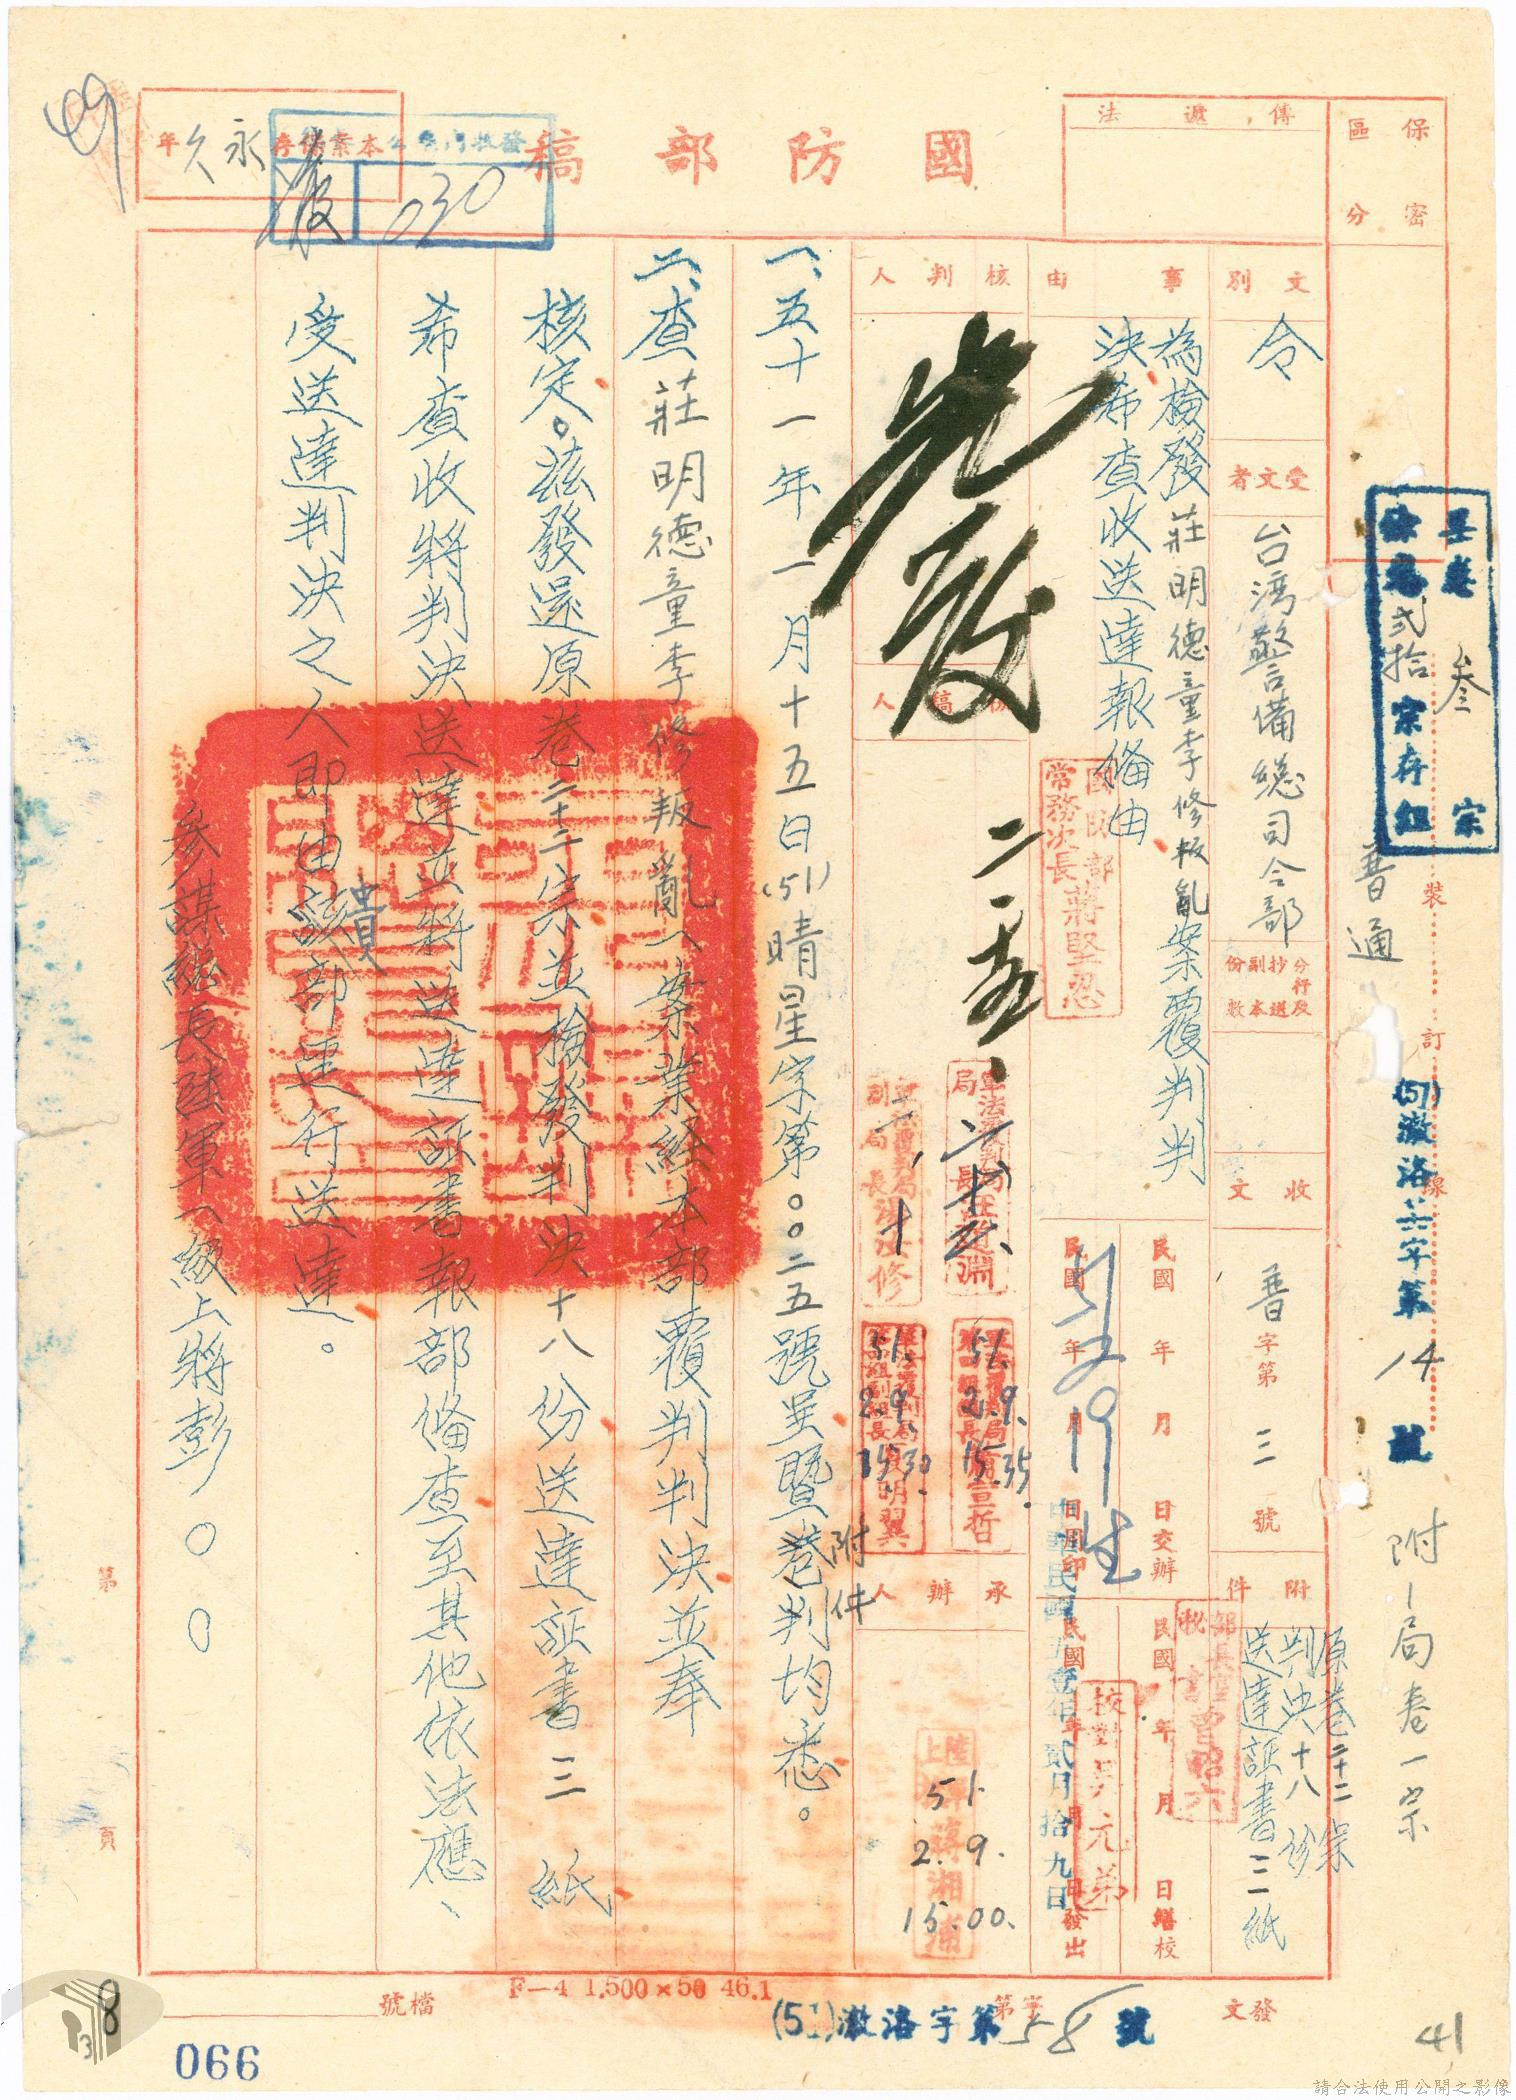 國防部稿
保密區分
傳遞法
永久
年存保案本
030
文別
令
受文者
台灣警備總司令部
分行及抄送副本份數
收文
普字第三號
附件
原卷二十二宗
判決十八份
送達証書三紙
事由
為檢發莊明德童李修叛亂案覆判判
決希查收送達報備由
民國年月日交辦
民國年月日繕校
民國年月日用印
民國年月日發出
中華民國五壹年貳月拾九日
核判人
核稿人
承辦人
國防部常務次長蔣堅忍
校對吳元弟
51.
2.9.
15.35.
51.
2.9.
15.30.
51.
2.9.
15.00.
一、五十一年一月十五日(51)晴星字第〇〇二五號呈暨附件卷判均悉。
二、查莊明德童李修叛亂一案業經本部覆判判決並奉
核定。茲發還原卷二十二宗並檢發判決十八份送達証書三紙
希查收將判決送達並將送達証書報部備查至其他依法應、
受送達判決之人即由該貴部逕行送達。
參謀總長陸軍一級上將彭〇〇
呈卷叁宗
涂卷貳拾宗存組
普通
裝
訂
線
(51)澈洛共字第14號
附一局卷一宗
第
頁
檔號
F—4 1,500×50 46.1
發文
字第
(51)澈洛字第58號
066
41
8
請合法使用公開之影像